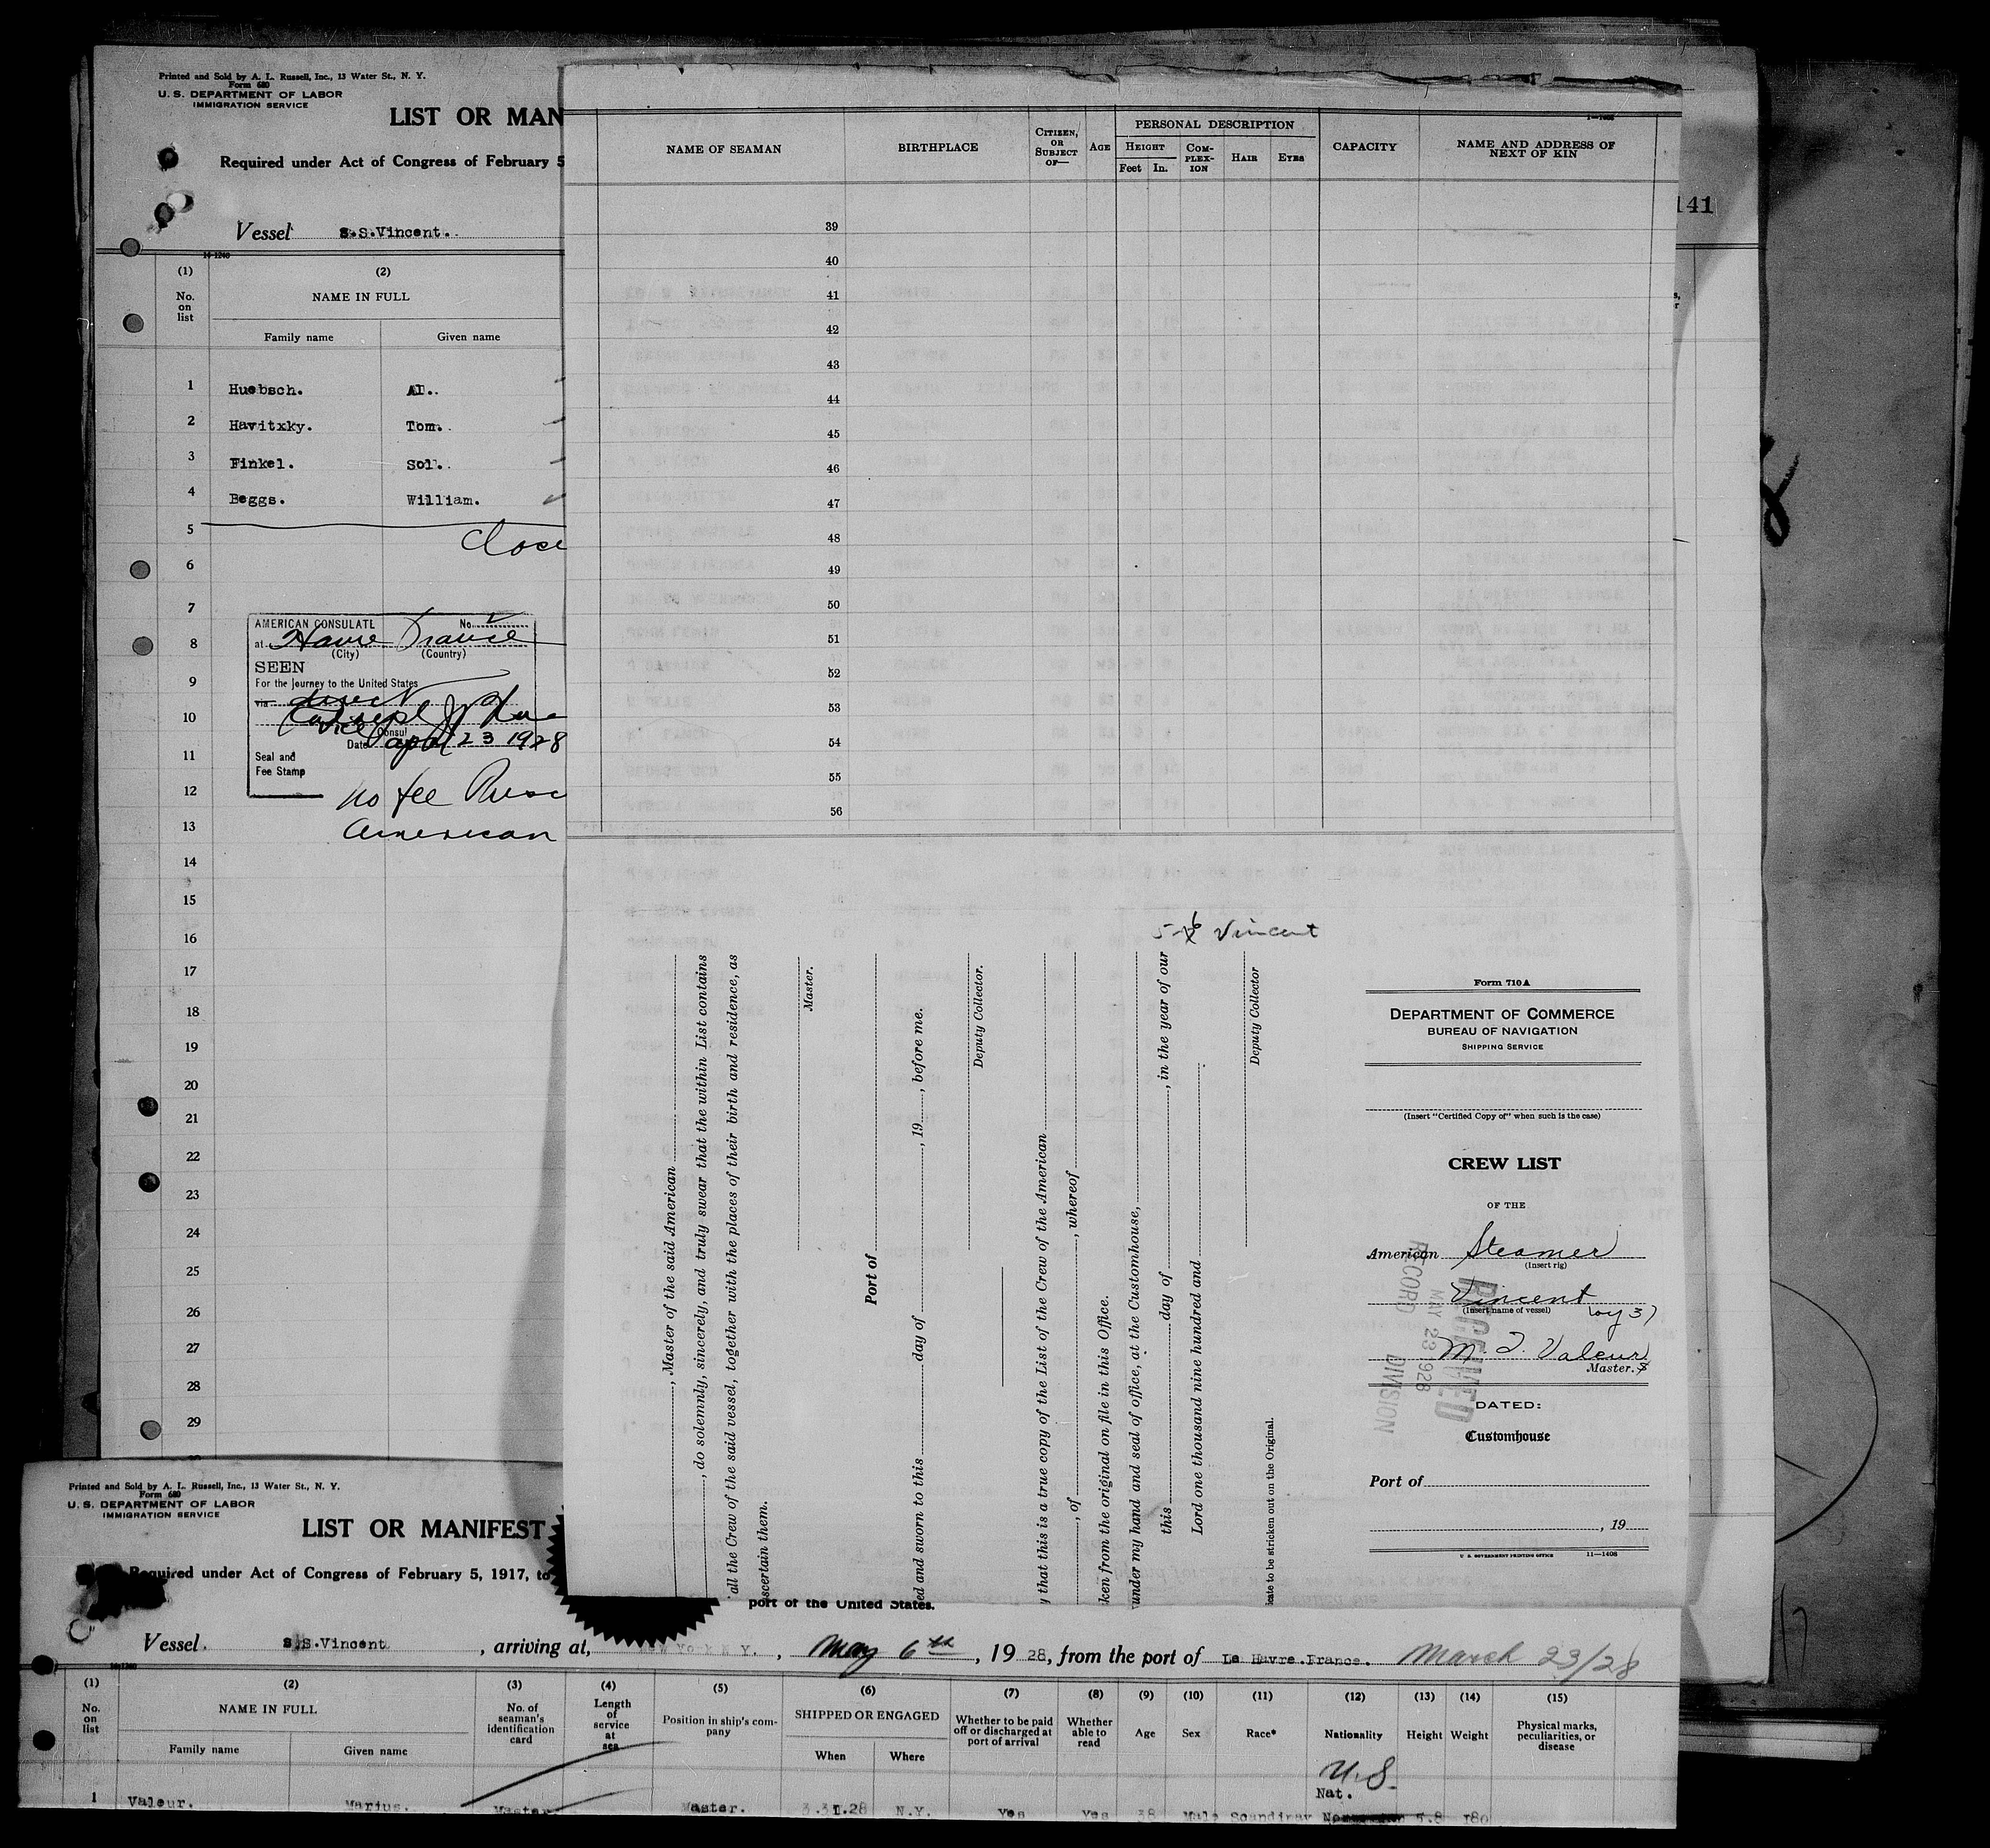 Printed and Sold by A. L. Russell, Inc., 13 Water St., N. Y.
Form 680
U. S. DEPARTMENT OF LABOR
IMMIGRATION SERVICE
LIST OR MAN
Required under Act of Congress of February 5
Vessel S.S.Vincent.
14-1240
(1) (2)
No. on list NAME IN FULL
Family name Given name
1 Huebsch. Al.
2 Havitxky. Tom.
3 Finkel. Sol.
4 Beggs. William.
5
Close
6
7
AMERICAN CONSULATE No.
at Havre France
8
(City) (Country)
SEEN
9
For the journey to the United States
via direct
10
Vice Consul
Date April 23 1928
11
Seal and
Fee Stamp
12
no fee
13
American
14
15
16
17
18
19
20
21
22
23
24
25
26
27
28
29
141
NAME OF SEAMAN BIRTHPLACE CITIZEN, OR SUBJECT OF— AGE PERSONAL DESCRIPTION CAPACITY NAME AND ADDRESS OF NEXT OF KIN
HEIGHT COMPLEX-ION HAIR EYES
Feet In.
39
40
41
42
43
44
45
46
47
48
49
50
51
52
53
54
55
56
Vincent
, Master of the said American
, do solemnly, sincerely, and truly swear that the within List contains
all the Crew of the said vessel, together with the places of their birth and residence, as
ascertain them.
Master.
Port of
ed and sworn to this day of , 19 , before me.
Deputy Collector.
y that this is a true copy of the List of the Crew of the American
, of , whereof
ken from the original on file in this Office.
under my hand and seal of office, at the Customhouse,
this day of , in the year of our
Lord one thousand nine hundred and
Deputy Collector
icate to be stricken out on the Original.
Form 710A
DEPARTMENT OF COMMERCE
BUREAU OF NAVIGATION
SHIPPING SERVICE
(Insert "Certified Copy of" when such is the case)
CREW LIST
OF THE
American Steamer
(Insert rig)
Vincent
(Insert name of vessel)
Voy 37
M. J. Valeur
Master.
RECEIVED
MAY 23 1928
RECORD DIVISION
DATED:
Customhouse
Port of
, 19
U. S. GOVERNMENT PRINTING OFFICE 11—1406
Printed and Sold by A. L. Russell, Inc., 13 Water St., N. Y.
Form 680
U. S. DEPARTMENT OF LABOR
IMMIGRATION SERVICE
LIST OR MANIFEST
Required under Act of Congress of February 5, 1917, to
port of the United States.
Vessel S.S.Vincent , arriving at, New York N Y. , May 6th , 19 28, from the port of Le Havre.France. March 23/28
14-1240
(1) (2) (3) (4) (5) (6) (7) (8) (9) (10) (11) (12) (13) (14) (15)
No. on list NAME IN FULL No. of seaman's identification card Length of service at sea Position in ship's company SHIPPED OR ENGAGED Whether to be paid off or discharged at port of arrival Whether able to read Age Sex Race* Nationality Height Weight Physical marks, peculiarities, or disease
Family name Given name When Where
U.S.
Nat.
1 Valeur. Marius. Master Master. 3.31.28 N.Y. Yes Yes 38 Male Scandinav 5.8 180